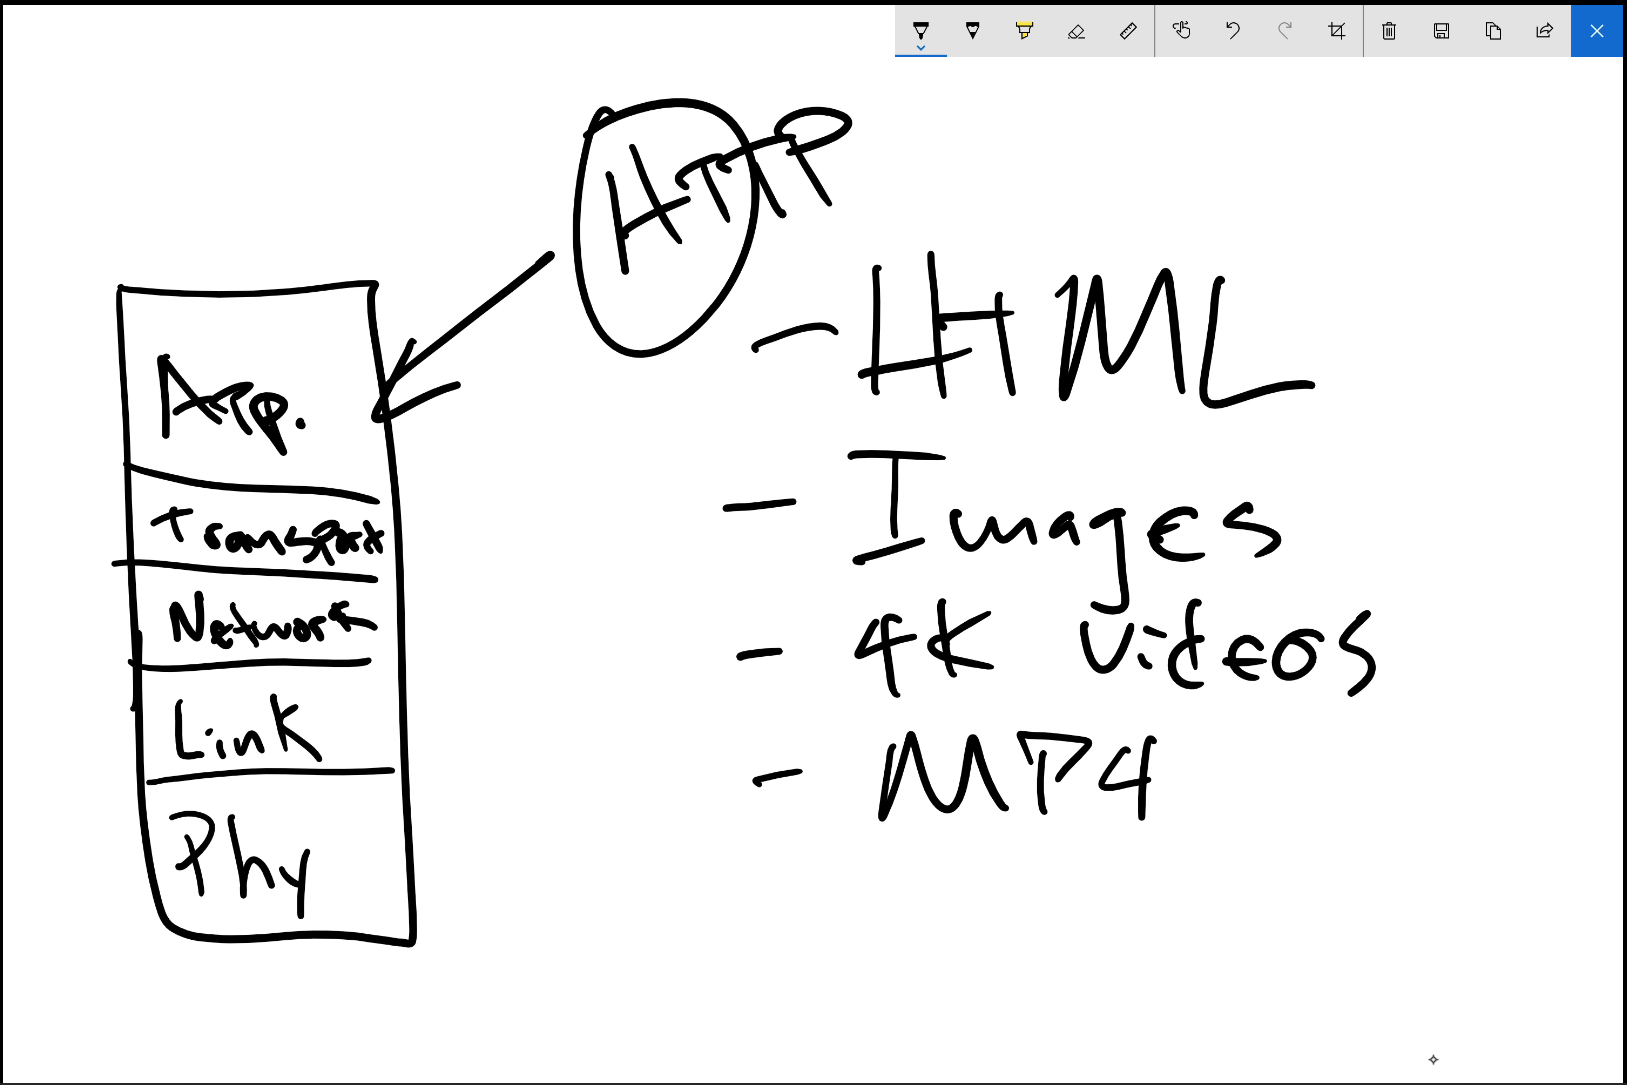 HTTP
App.
Transport
Network
Link
Phy
- HTML
- Images
- 4K videos
- MP4